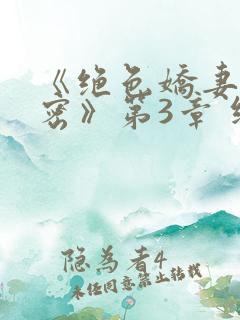 《绝色娇妻
密》第3章
隐为者4
未经同意禁止转载